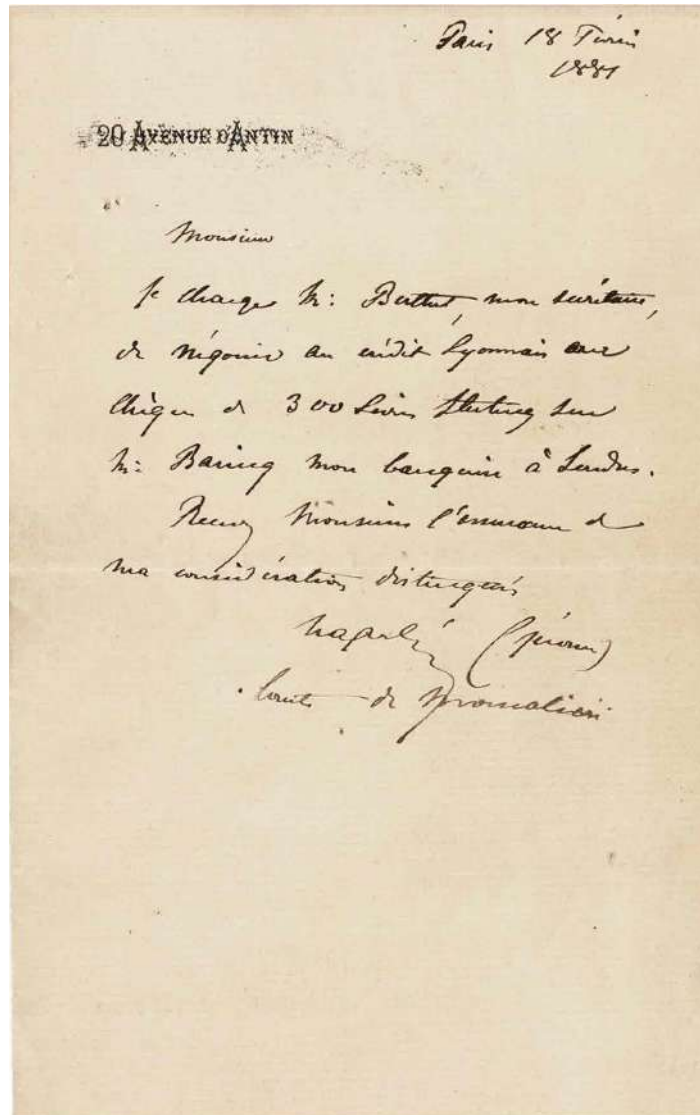 Paris 18 Février
1881
20 AVENUE D'ANTIN
Monsieur
Je charge M: Berthet, mon secrétaire,
de négocier au crédit Lyonnais une
chèque de 300 Livres Sterling sur
M: Baring mon banquier à Londres.
Recevez Monsieur l'assurance de
ma considération distinguée
Napoléon (Jérome)
Comte de Moncalieri